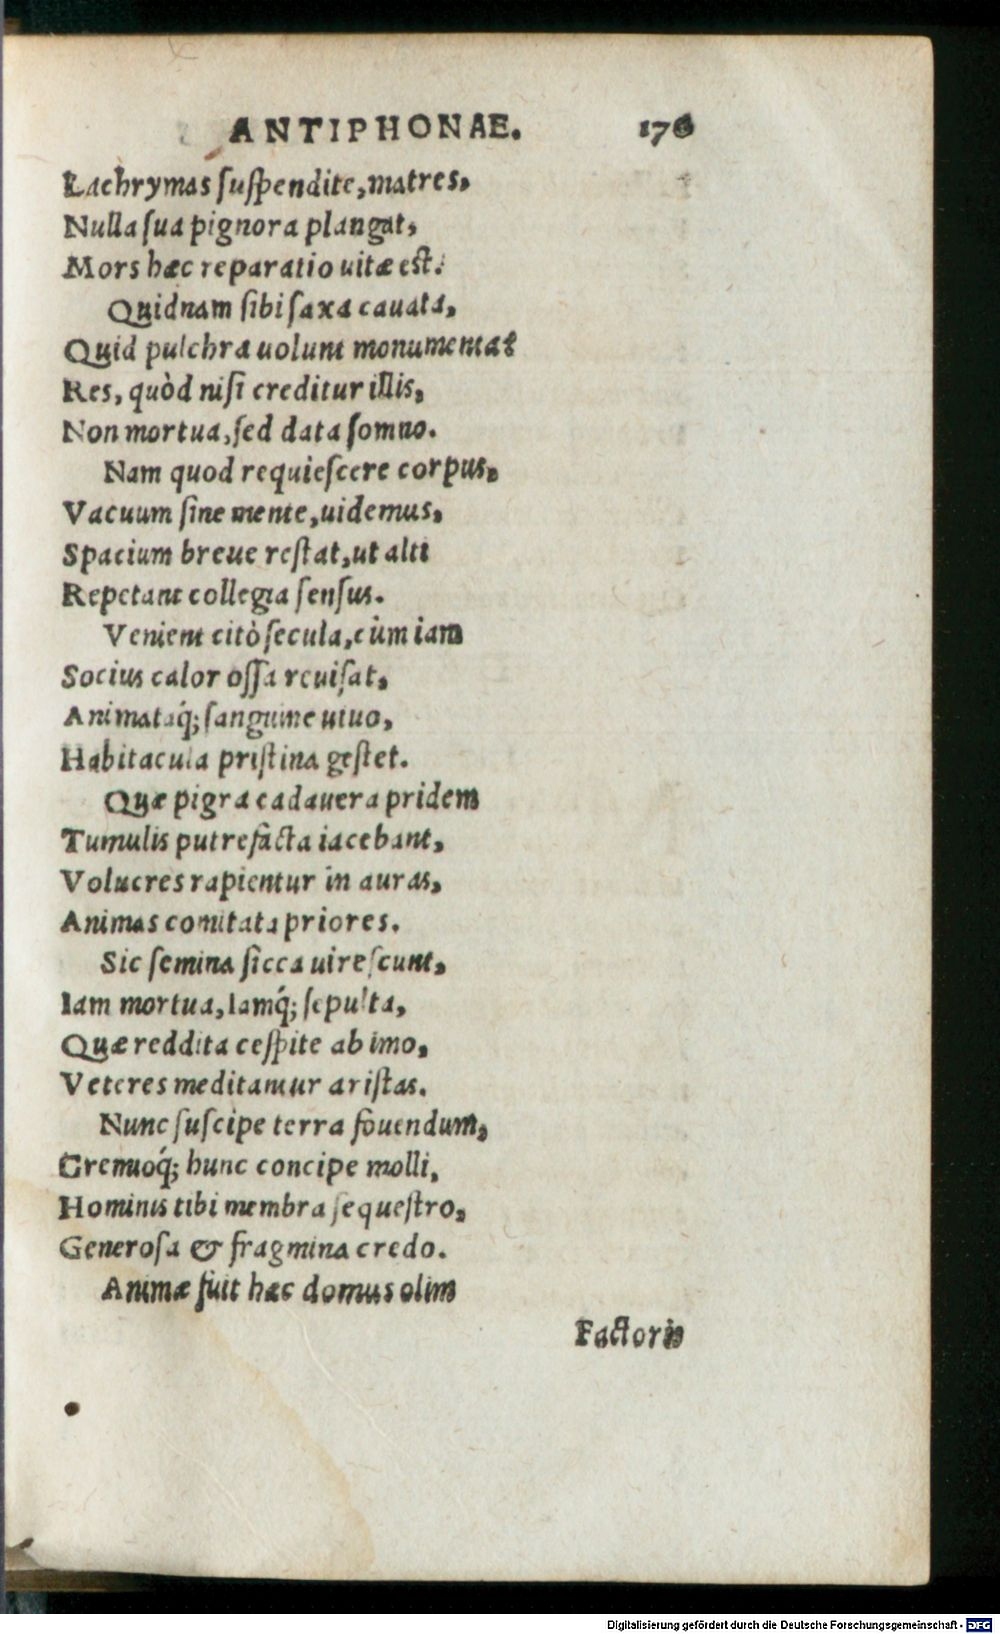 ANTIPHONAE. 176
Lachrymas ſuſpendite, matres,
Nulla ſua pignora plangat,
Mors hæc reparatio uitæ eſt.
Quidnam ſibi ſaxa cauata,
Quid pulchra uolunt monumenta?
Res, quòd niſi creditur illis,
Non mortua, ſed data ſomno.
Nam quod requieſcere corpus,
Vacuum ſine mente, uidemus,
Spacium breue reſtat, ut alti
Repetant collegia ſenſus.
Venient citò ſecula, cùm iam
Socius calor oſſa reuiſat,
Animataq́; ſanguine uiuo,
Habitacula priſtina geſtet.
Quæ pigra cadauera pridem
Tumulis putrefacta iacebant,
Volucres rapientur in auras,
Animas comitata priores.
Sic ſemina ſicca uireſcunt,
Iam mortua, Iamq́; ſepulta,
Quæ reddita ceſpite ab imo,
Veteres meditantur ariſtas.
Nunc ſuſcipe terra fouendum,
Gremioq́; hunc concipe molli,
Hominis tibi membra ſequeſtro,
Generoſa & fragmina credo.
Animæ fuit hæc domus olim
Factoris
Digitalisierung gefördert durch die Deutsche Forschungsgemeinschaft - DFG